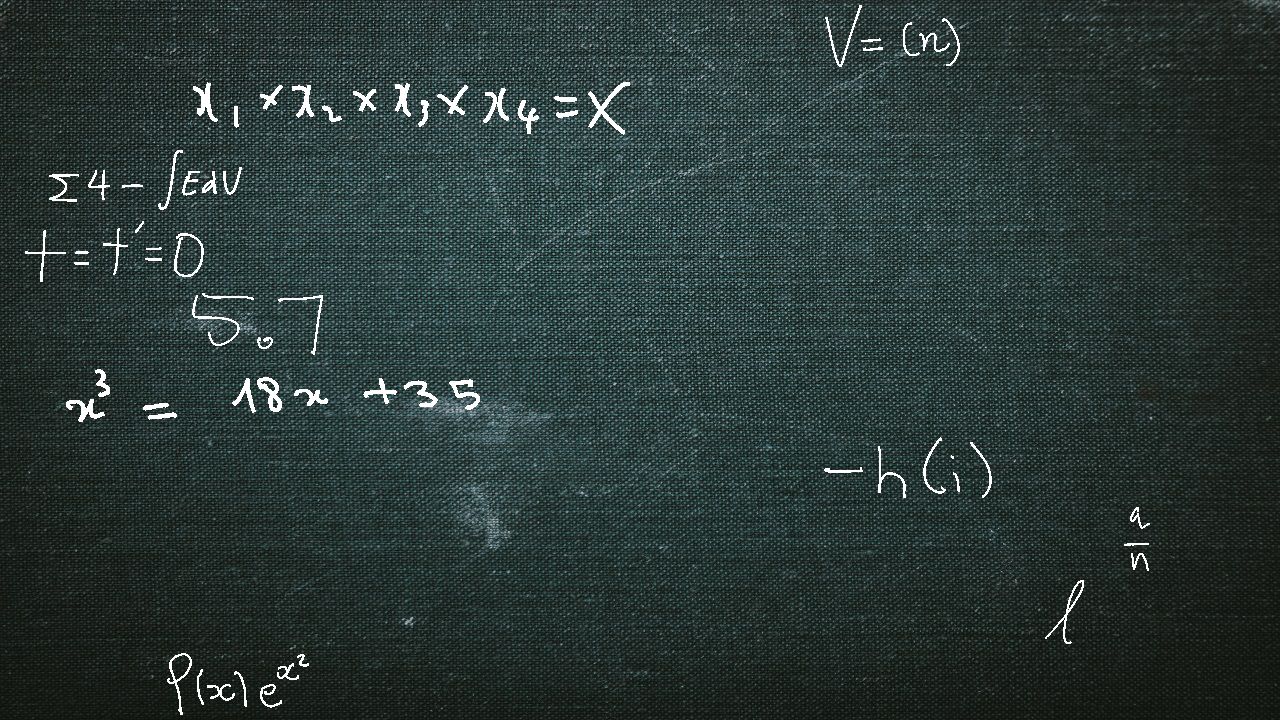 V = (n)
x₁ × x₂ × x₃ × x₄ = X
Σ4 - ∫EdV
t = t' = 0
5.7
x³ = 18x + 35
-h(i)
a/n
l
P(x)e^x²